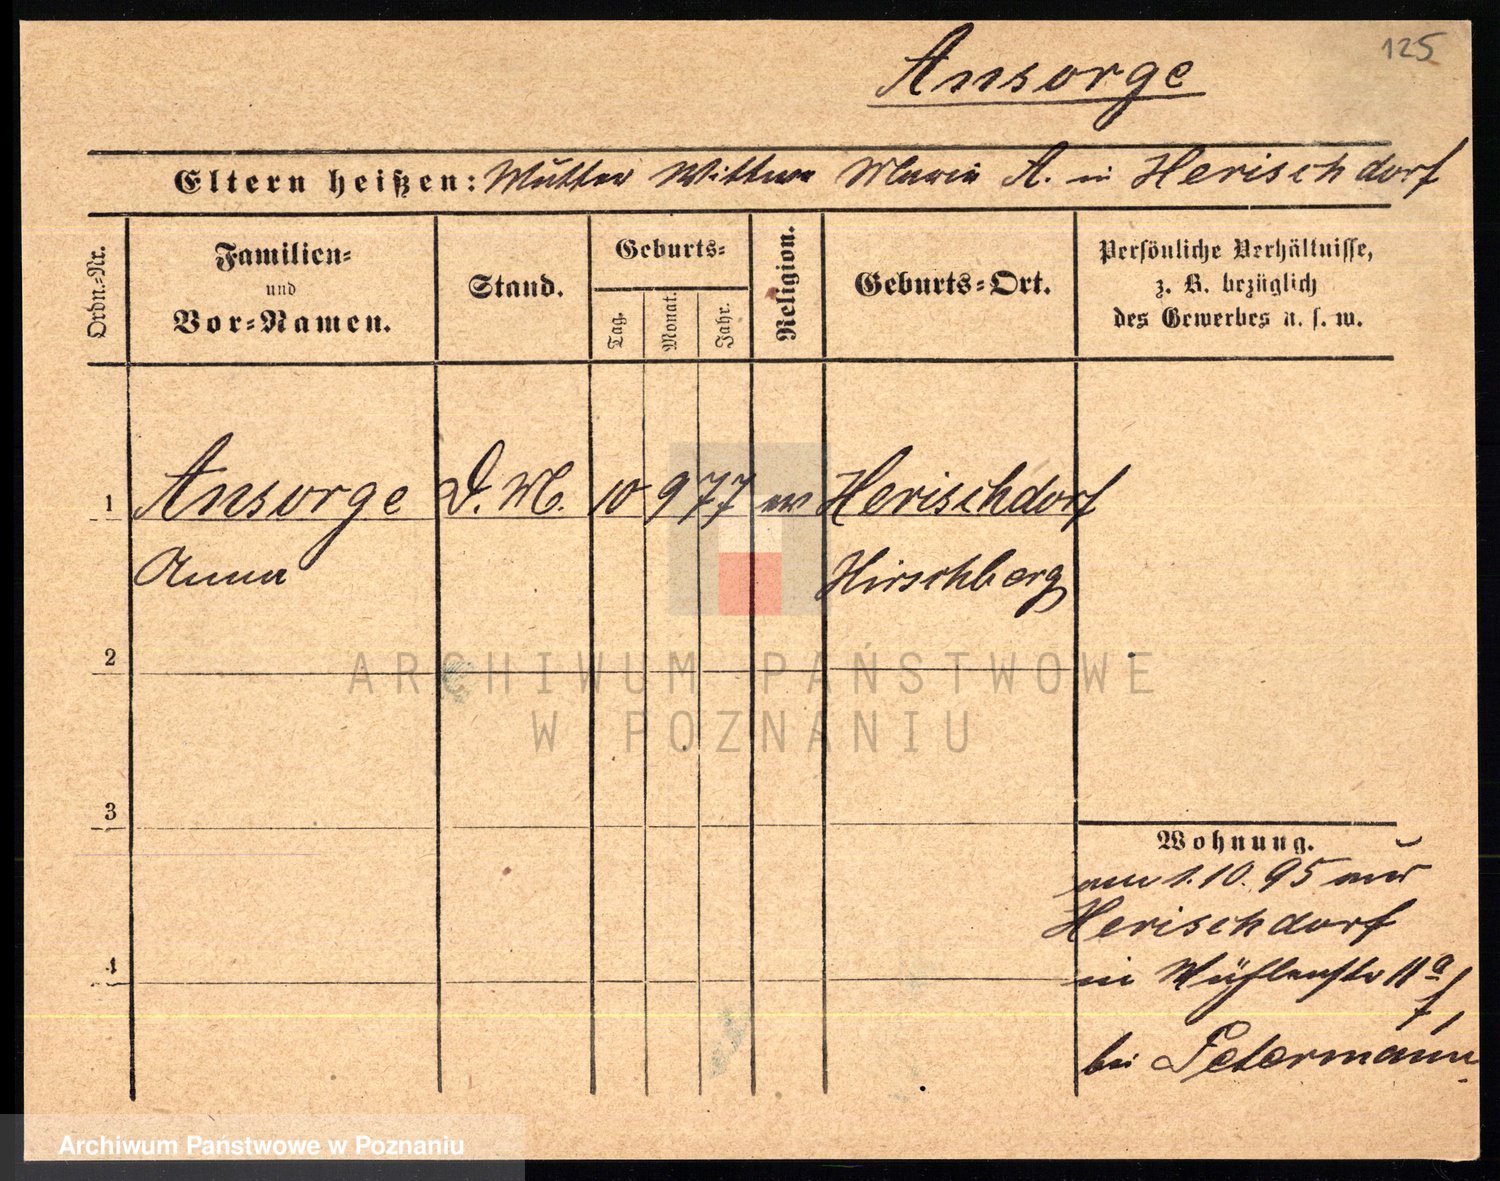 125
Ansorge
Eltern heißen: Mutter Wittwe Marie A. in Herischdorf
Ordn.-Nr.
Familien-
und
Vor-Namen.
Stand.
Geburts-
Tag.
Monat.
Jahr.
Religion.
Geburts-Ort.
Persönliche Verhältnisse,
z. B. bezüglich
des Gewerbes u. s. w.
1 Ansorge D. M. 10 9 77 ev Herischdorf
Anna Hirschberg
2
3
4
Wohnung.
am 1. 10. 95 aus
Herischdorf
in Mühlenstr 11a
bei Petermann
ARCHIWUM PAŃSTWOWE
W POZNANIU
Archiwum Państwowe w Poznaniu